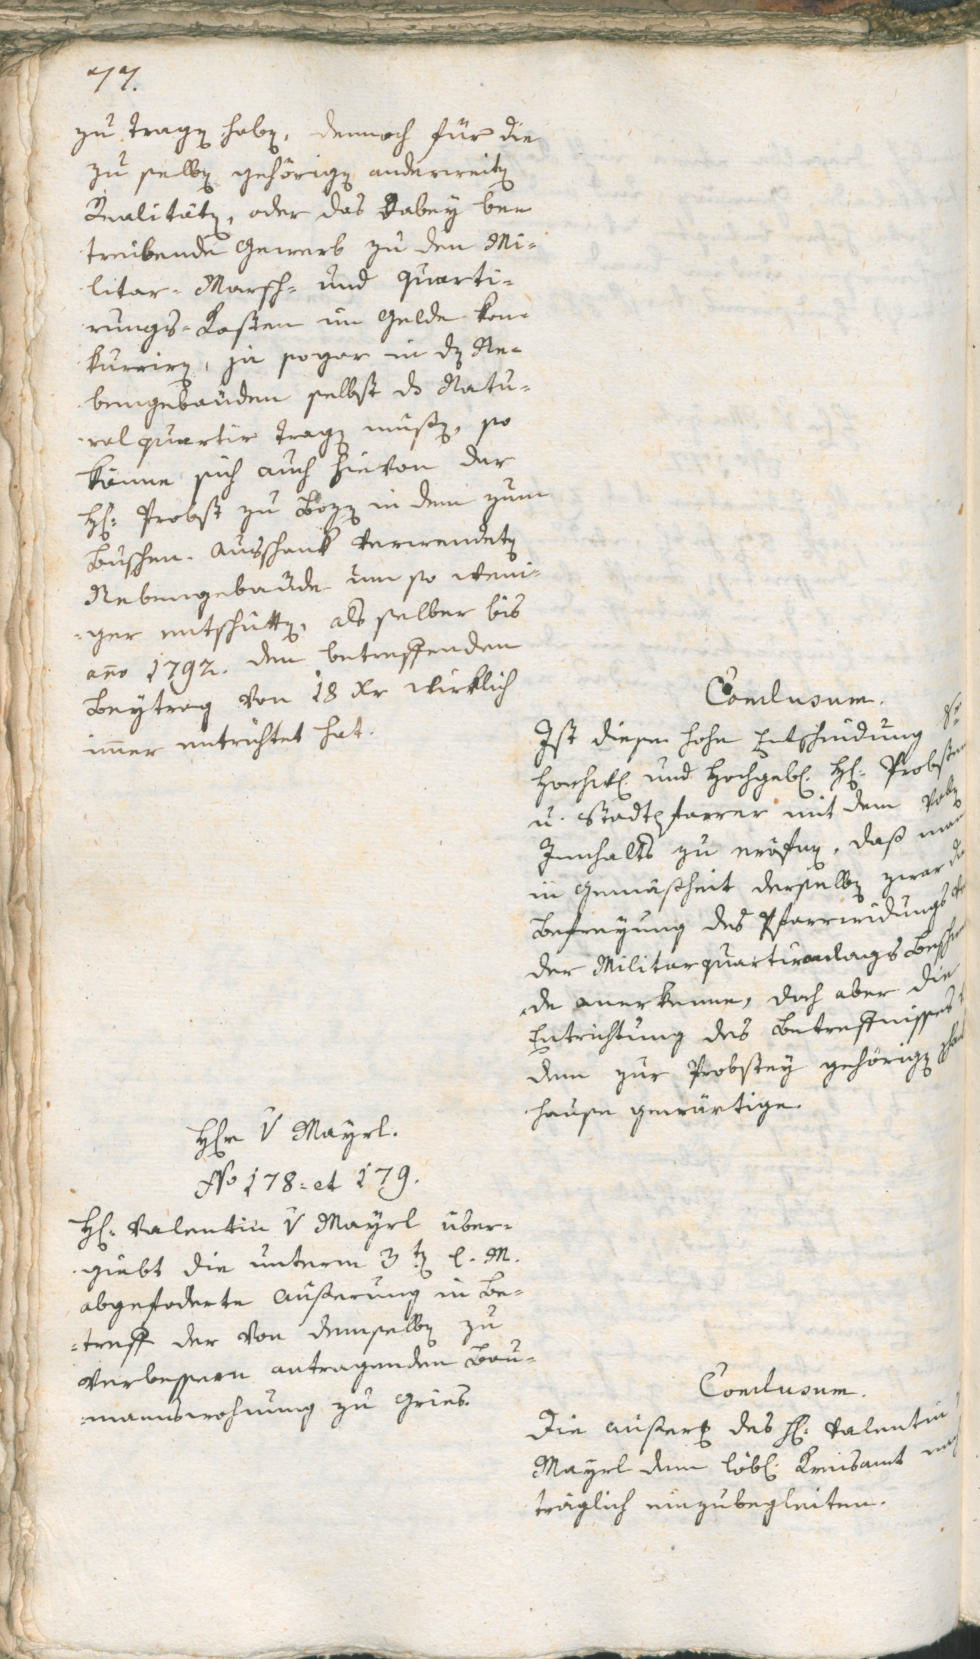 77.
zu tragen haben, dennoch für die
zu selben gehörigen anderweiten
Realitäten, oder das dabey be-
treibende Gewerb zu den Mi-
litar- Marsch- und Quarti-
rungs-Kosten im Gelde kon-
kuriren, ja sogar in den Ne-
bengebäuden selbst das Natu-
ralquartir tragen müßen, so
könne sich auch hievon der
H: Probst zu Bozen in dem zum
Buschen-Ausschank verwendeten
Nebengebäude um so weni-
ger entschütten, als selber bis
ano 1792. den betreffenden
Beytrag von 18 Xr wirklich
imer entrichtet hat.
Conclusum.
Ist diese hohe Entscheidung Sr
Hochw. und Hochgeb. H: Probsten
u. Stadtpfarrer mit dem
Innhalts zu eröfnen, daß man
in Gemäßheit derselben zwar die
Befreyung des Pfarrwidungs
der Militarquartiranlags
de anerkenne, doch aber die
Entrichtung des Betreffnisses
dem zur Probstey gehörigen
hause gewärtige.
Herr v Mayrl.
No 178: et 179.
H: Valentin v Mayrl über-
giebt die unterm 3ten e. M.
abgefoderte Äußerung in Be-
treff der von demselben zu
verbessern antragenden Bau-
mannswohnung zu Gries.
Conclusum.
Die Äußerung des H: Valentin v
Mayrl dem löbl. Kreisamt nach
träglich einzubegleiten.